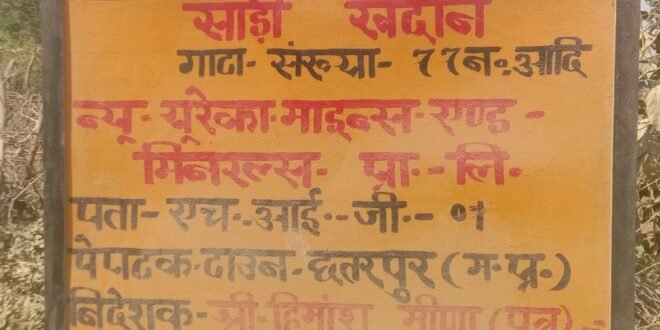 साड़ी खदान
गाटा- संख्या- 77न॰आदि
न्यु-युरेका-माइन्स-एण्ड-
मिनरल्स- प्रा--लि-
पता-एच-आई--जी-- ०१
पेपटक-टाउन-छतरपुर (म॰प्र॰)
निदेशक- श्री-हिमांश मीणा (पुत्र)-